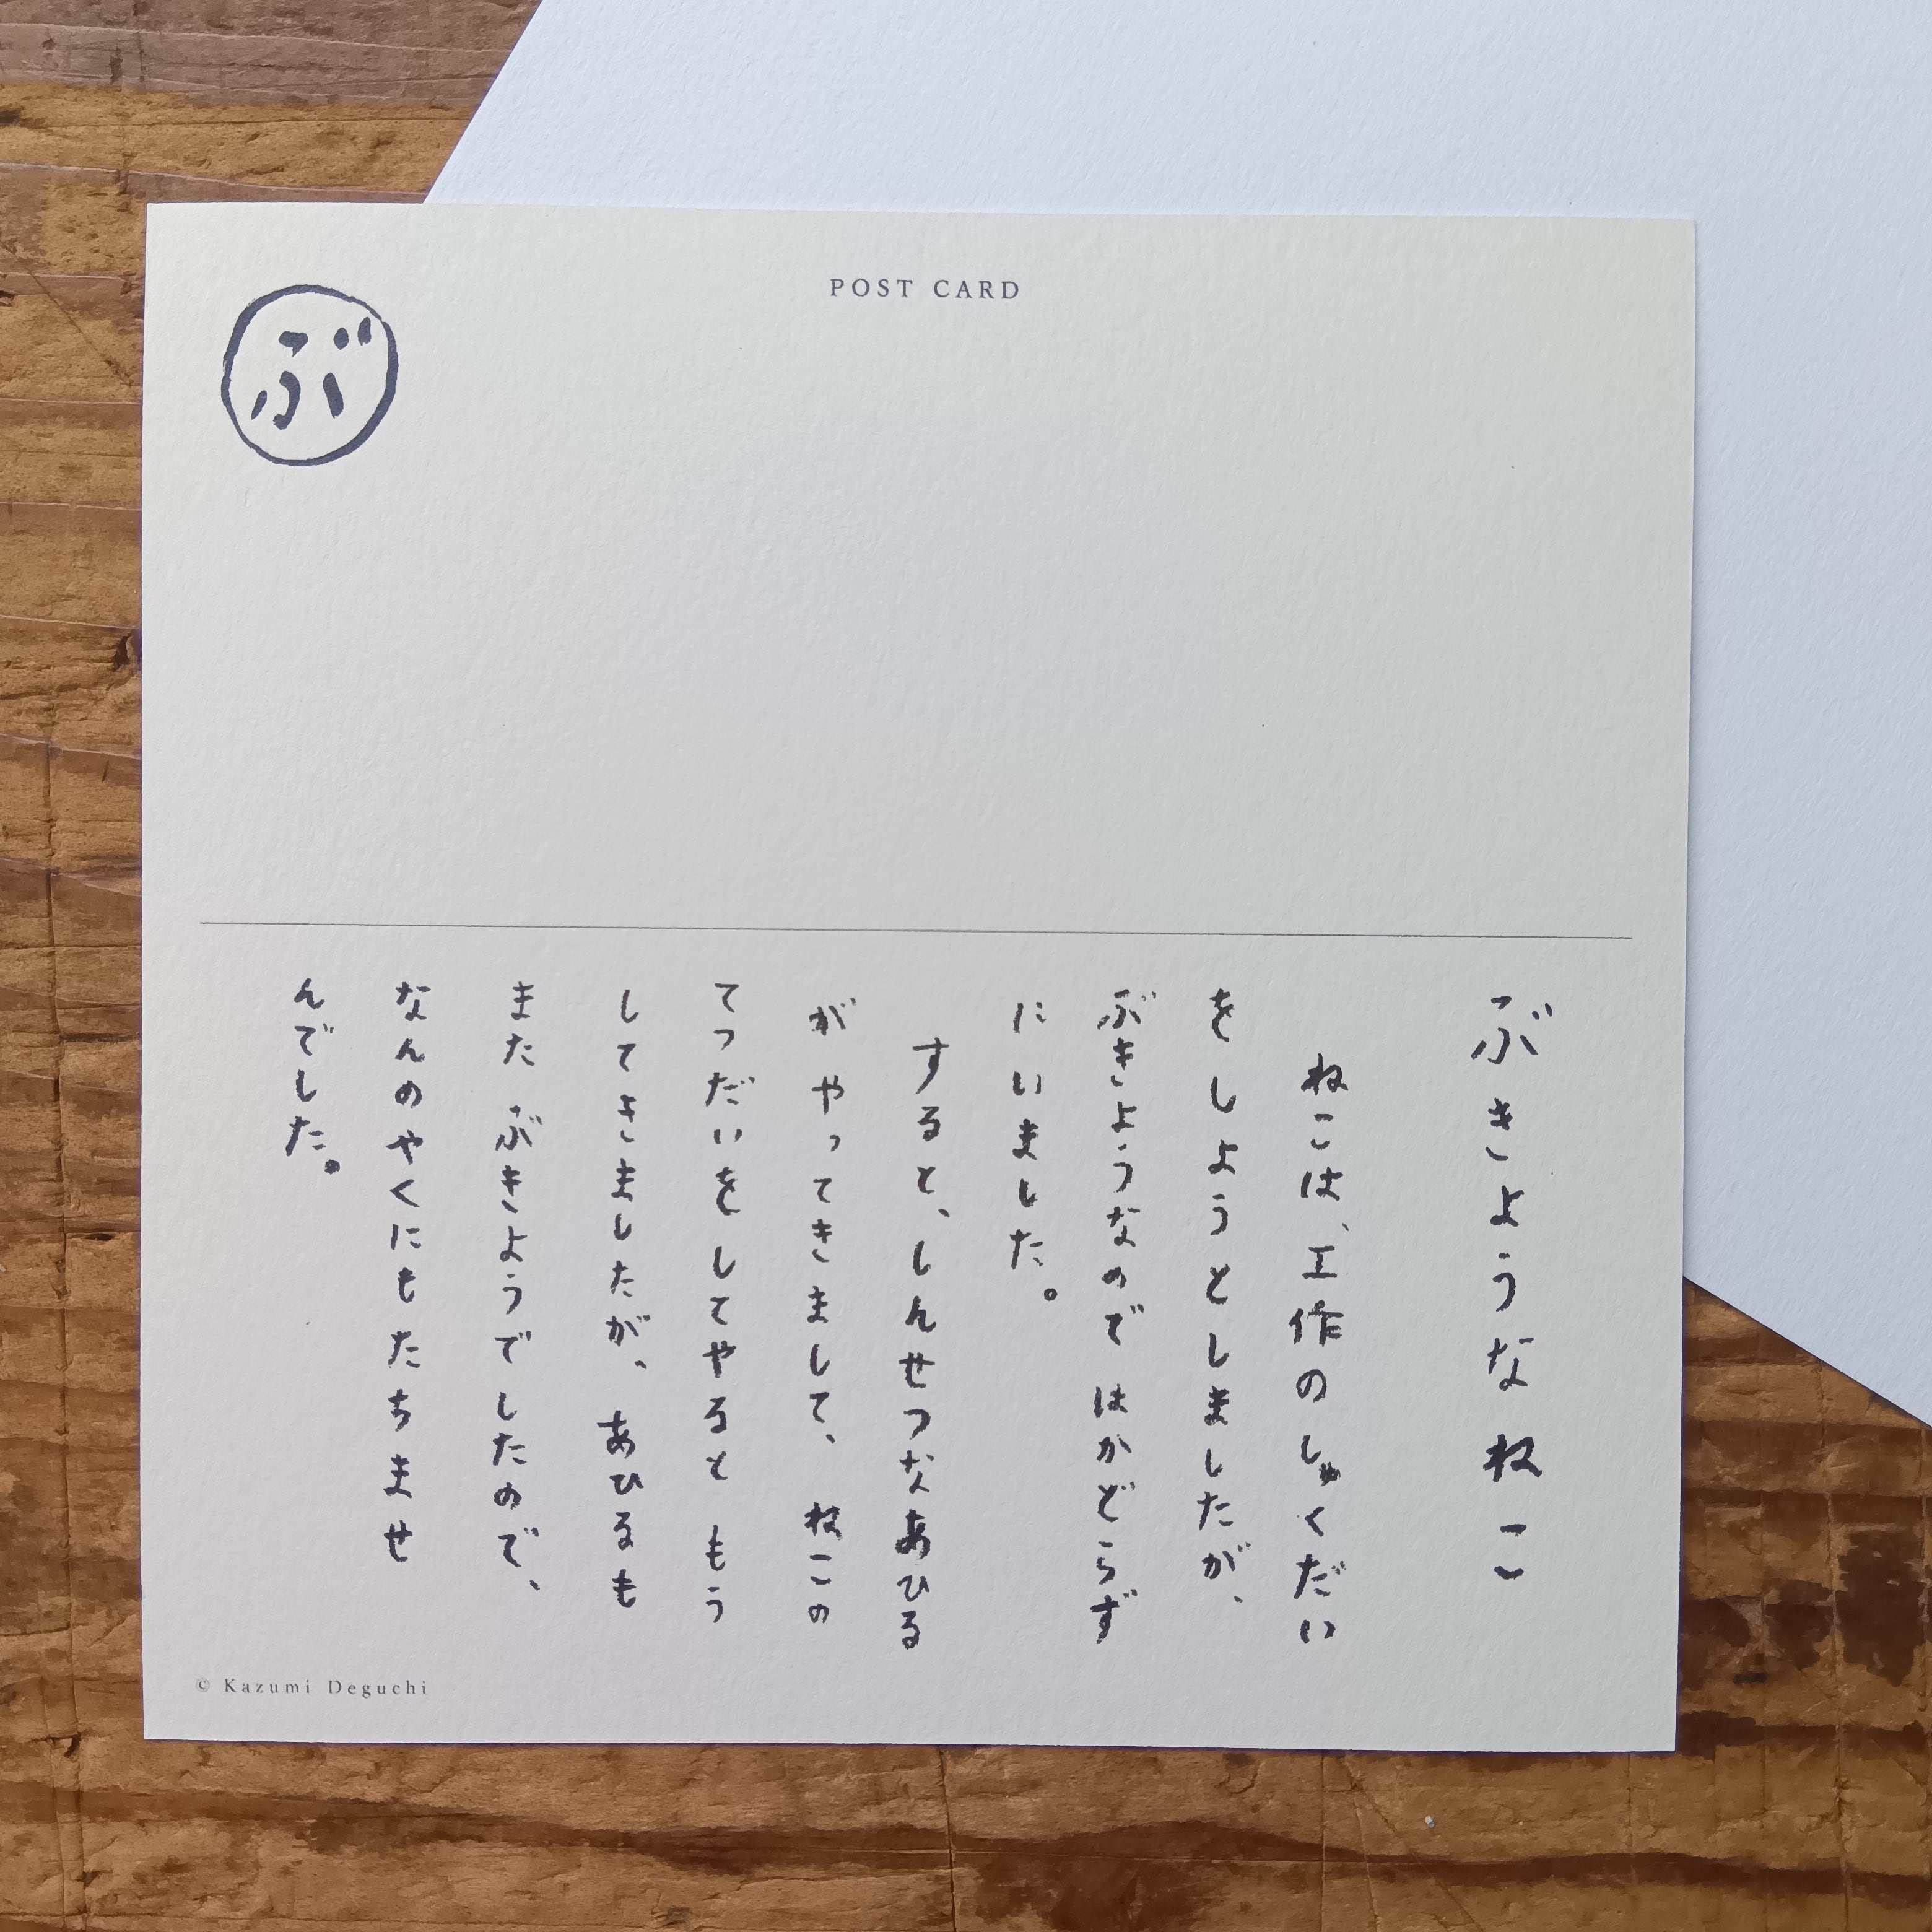 POST CARD
ぶ
ぶきような ねこ
ねこは、工作のしゅくだい
をしようとしましたが、
ぶきようなので はかどらず
にいました。
すると、しんせつなあひる
が やってきまして、ねこの
てつだいを してやると もう
してきましたが、あひるも
また ぶきようで したので、
なんのやくにもたちませ
んでした。
© Kazumi Deguchi